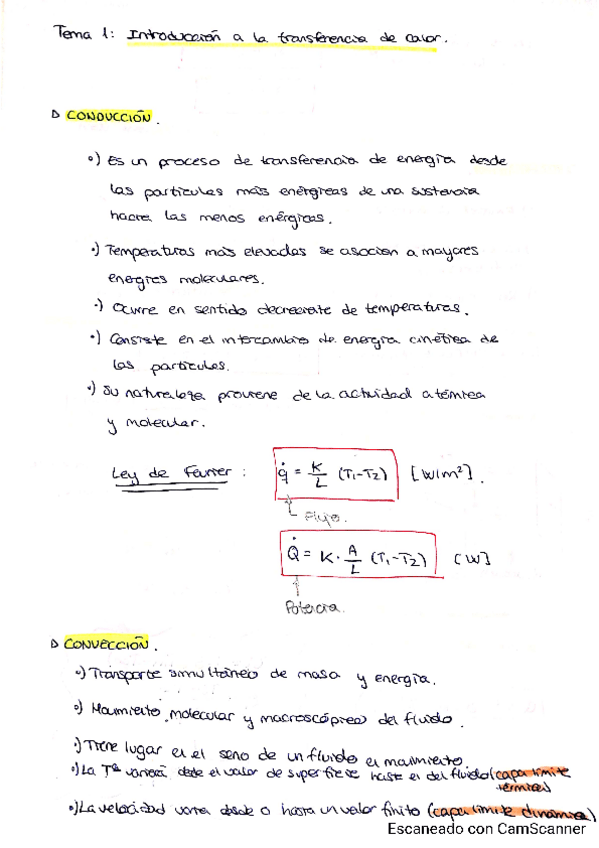 Tema 1: Introducción a la transferencia de calor.
▷ CONDUCCIÓN.
•) Es un proceso de transferencia de energía desde
las partículas más enérgicas de una sustancia
hacia las menos enérgicas.
•) Temperaturas más elevadas se asocian a mayores
energías moleculares.
•) Ocurre en sentido decreciente de temperaturas.
•) Consiste en el intercambio de energía cinética de
las partículas.
•) Su naturaleza proviene de la actividad atómica
y molecular.
Ley de Fourier: q̇ = K/L (T1-T2) [W/m²].
Flujo.
Q̇ = K · A/L (T1-T2) [W]
Potencia.
▷ CONVECCIÓN.
•) Transporte simultáneo de masa y energía.
•) Movimiento molecular y macroscópico del fluido.
•) Tiene lugar en el seno de un fluido en movimiento.
•) La Tª variará desde el valor de superficie hasta el del fluido (capa límite
térmica)
•) La velocidad varía desde 0 hasta un valor finito (capa límite dinámica)
Escaneado con CamScanner